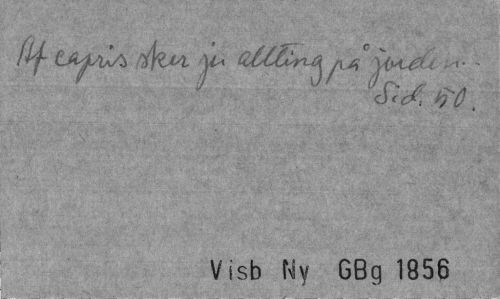 Af capris sker ju allting på jorden.
Sid. 50.
Visb Ny GBg 1856